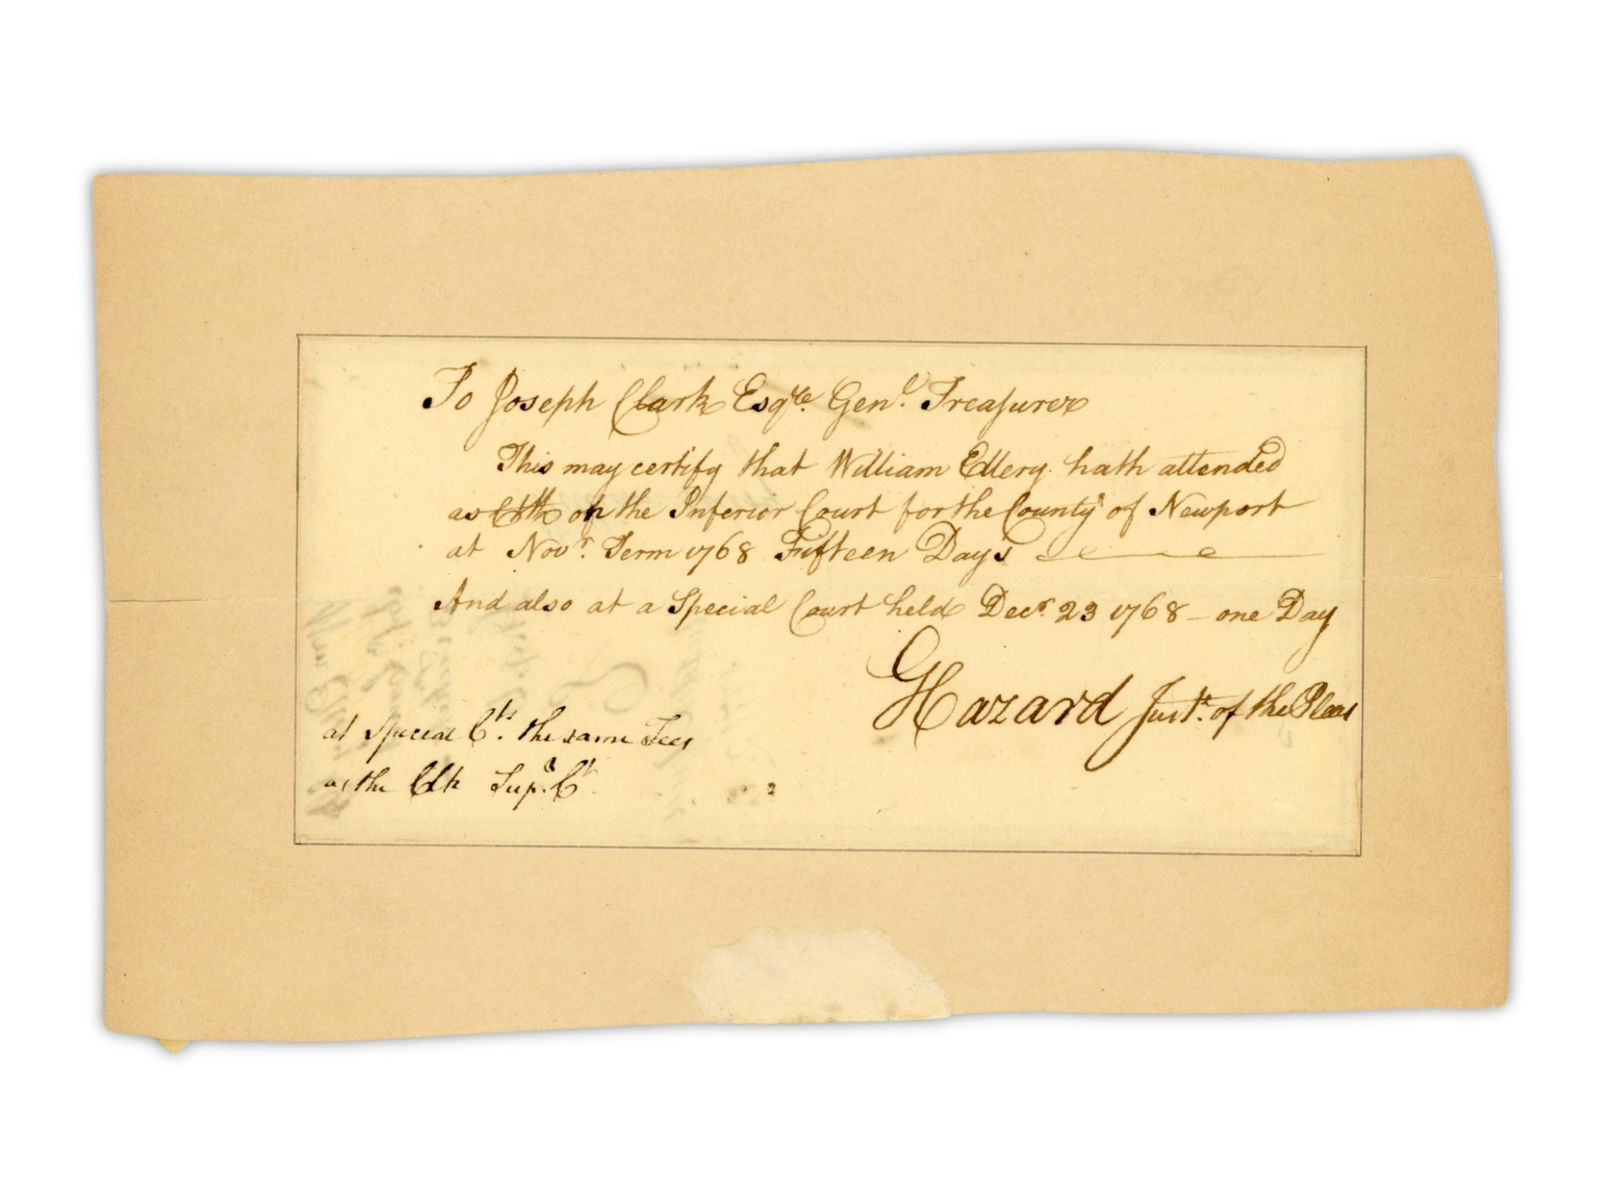 To Joseph Clark Esqre. Genl. Treasurer
This may certify that William Ellery hath attended
as Clk of the Inferior Court for the County of Newport
at Novr. Term 1768 Fifteen Days
And also at a Special Court held Decr. 23 1768 - one Day
GHazard Justs. of the Pleas
at Special Cts. the same Fees
as the Clk Supr. Ct.